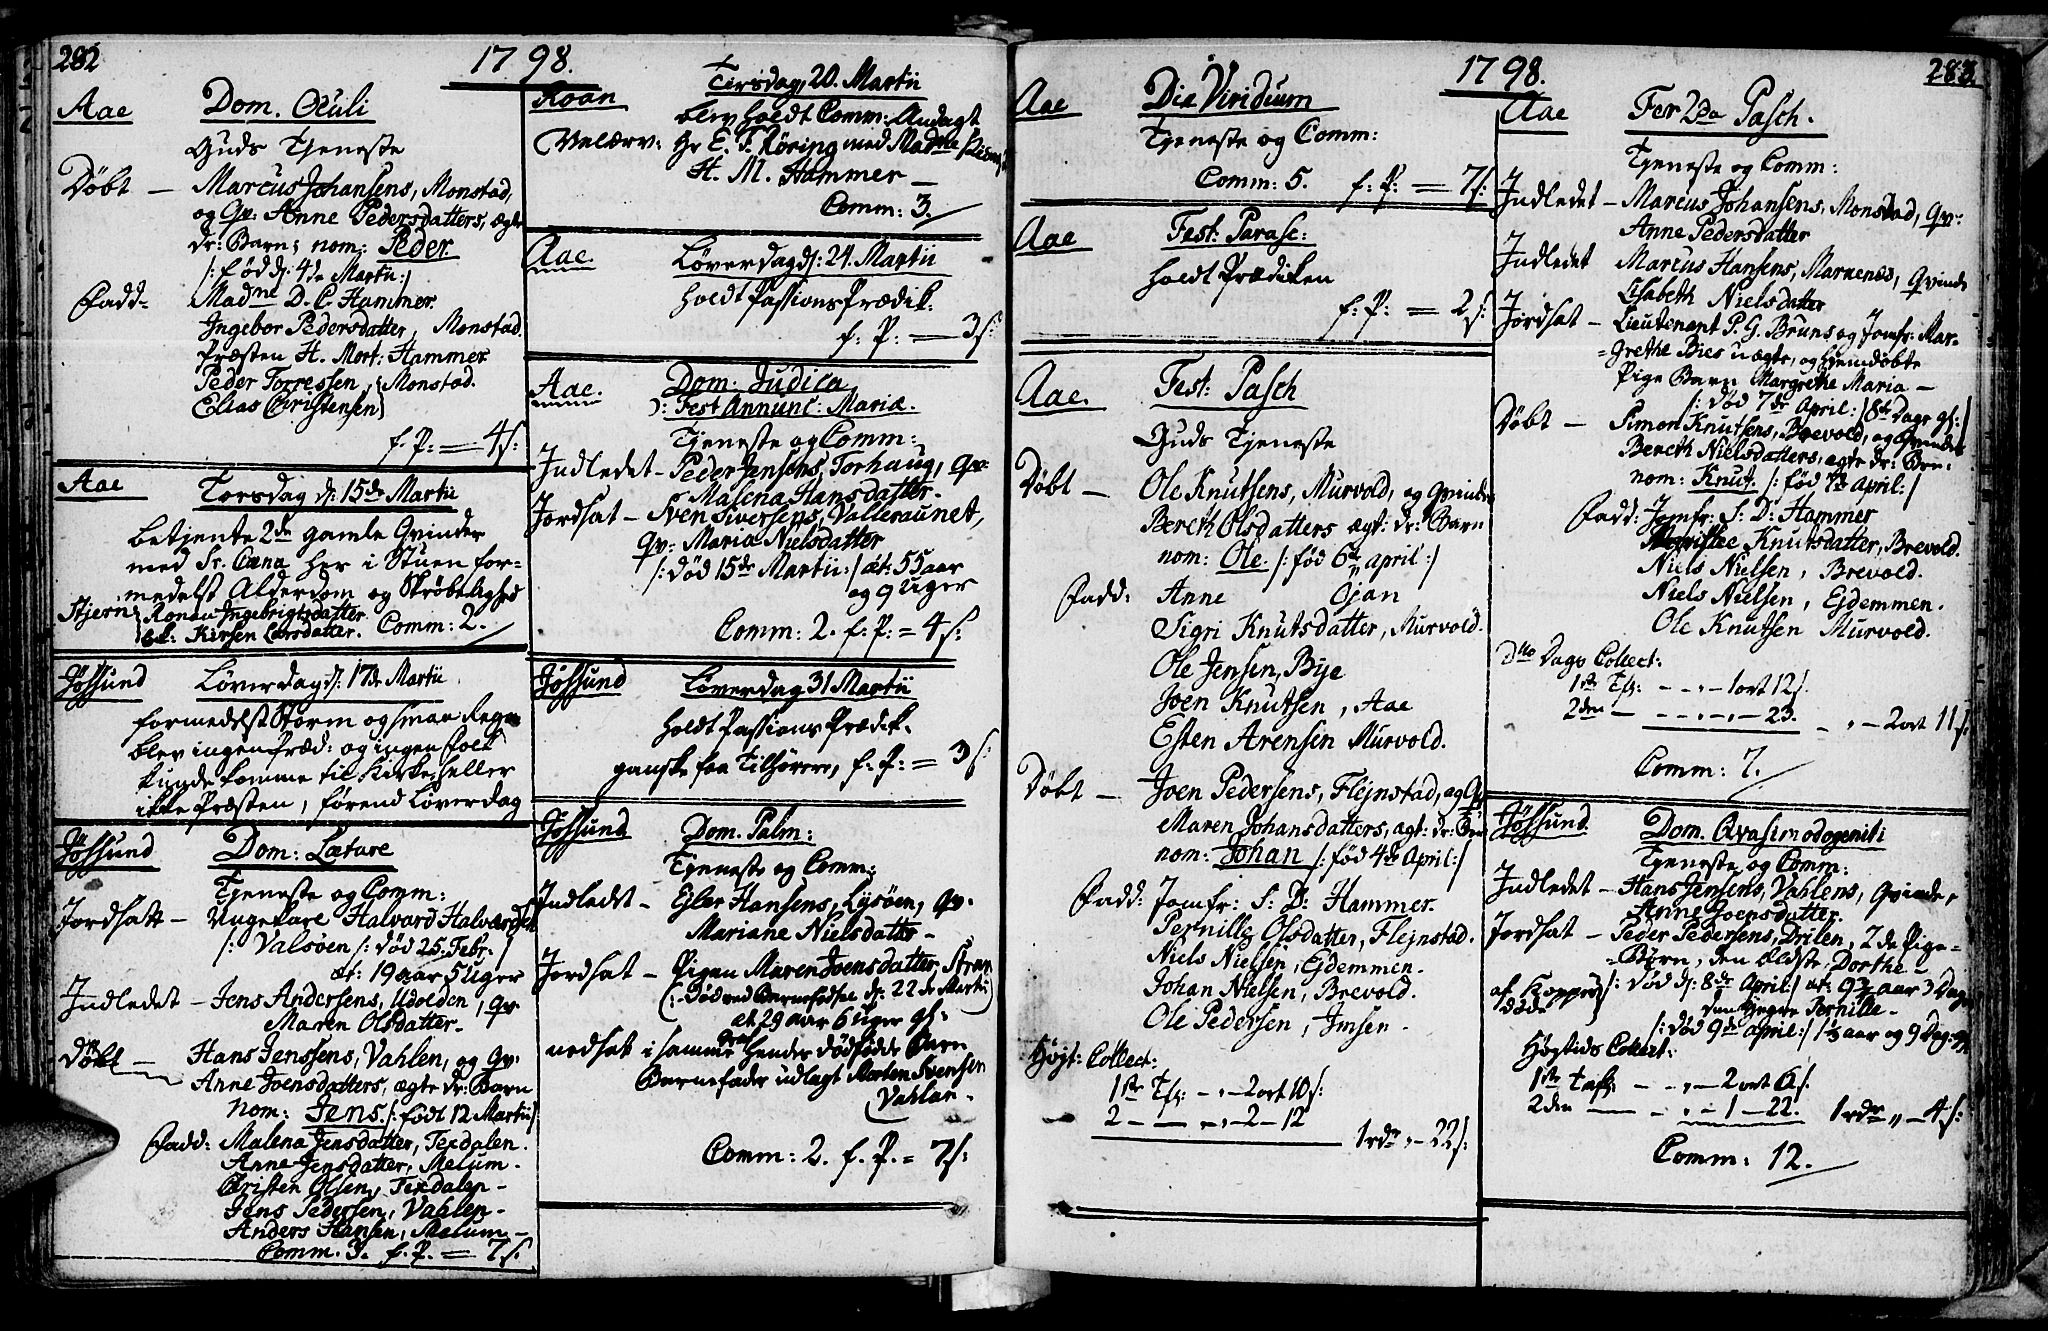 282
1798.
Aae Dom. Oculi
Guds Tjeneste
Døbt — Marcus Johansens, Monstad,
og Qv: Anne Pedersdatters, ægte
dr: Barn nom: Peder.
/: fød d: 4de Martii:/
Fadd: Madme D. C. Hammer.
Ingebor Pedersdatter, Monstad.
Præsten H. Mort: Hammer
Peder Torressen, } Monstad.
Elias Christensen}
f. P: = 4 s:
Aae Torsdag d: 15de Martii
betjente 2de gamle Qvinder
med Sr. Cæna her i Stuen for-
medelst Alderdom og Skrøbelighed
Stjern { Ronau Ingebrigtsdatter
Kirsen Larsdatter. Comm: 2.
Jøssund Løverdag d: 17de Martii
formedelst Storm og svaar Regn
blev ingen Præd: og ingen Folk
kunde komme til Kirke, heller
ikke Præsten, førend Løverdag
Jøssund Dom: Lætare
Tjeneste og Comm:
Jordsatt — Ungekare Halvard Halvardsen
/: Valsøen /: død 25. Febr. /
æt: 19 aar 5 Uger
Indledet — Jens Andersens, Udolden, Qv
Maren Olsdatter —
Døbt — Hans Jenssens, Vahlen, og Qv:
Anne Joensdatters, ægte dr: Barn
nom: Jens /: født 12 Martii /:
Fadd: Malena Jensdatter, Texdalen.
Anne Jensdatter, Melum —
Christen Olsen, Texdalen —
Jens Pedersen, Vahlen —
Anders Hansen, Melum —
Comm. 3. f. P. = 7 s:
Roan Tirsdag, 20. Martii
blev holdt Comm: Andagt
Valærv: Hr E. T. Röring med Madme
H. M. Hammer —
Comm: 3.
Aae. Løverdag d: 24. Martii
holdt Passions Prædik:
f: P: = 3 s:
Aae. Dom: Judica
): Fest Annunc: Mariæ.
Tjeneste og Comm:
Indledet — Peder Jensens, Torhaug, Qv:
Malena Hansdatter —
Jordsat — Sven Siversens, Valleraunet,
Qv: Maria Nielsdatter
/: død 15de Martii:/ æt: 55 aar
og 9 Uger
Comm: 2. f: P: = 4 s:
Jøssund Løverdag 31 Martii
holdt Passions Prædik.
ganske faa Tilhörere, f: P: = 3 s:
Jøssund Dom. Palm:
Tjeneste og Comm:
Indledet — Ejler Hansens, Lysöen, Qv.
Mariane Nielsdatter —
Jordsat — Pigen Maren Joensdatter
(: Död ved Barnefödsel d: 22de Martii
æt 29 aar 6 uger gl:
nedsat i samme Grav hendes dödfödde Barn
Barnefader udlagt Morten Svensen
Vahlen —
Comm: 2. f. P. = 7 s:
1798.
283.
Aae Die Viridium
Tjeneste og Comm:
Comm: 5. f: P: = 7 s:
Aae Fest: Parasc:
holdt Prædiken
f: P: = 2 s:
Aae. Fest: Pasch
Guds Tjeneste
Döbt — Ole Knutsens, Murvold, og Qvindes
Bereth Olsdatters ægt: dr: Barn
nom: Ole. /: fød 6te April:/
Fadd: Anne Ojan
Sigri Knutsdatter, Murvold.
Ole Jensen, Bye
Joen Knutsen, Aae
Esten Arensen Murvold.
Döbt — Joen Pedersens, Flejnstad, og Qv
Maren Johansdatters, ægt: dr: Barn
nom: Johan /: fød 4de April:/
Fadd: Jomfr: S: D: Hammer.
Pernille Olsdatter, Flejnstad.
Niels Nielsen, Ejdemmen —
Johan Nielsen, Brevold.
Ole Pedersen, Imsen —
Höjt: Collect:
1ste Tfl: — „ — 2 ort 10 s:
2 — — „ — 2 — 12
1 rdr „ — 22 s:
Aae Fer 2da Pasch.
Tjeneste og Comm:
Indledet — Marcus Johansens, Monstad, Qv:
Anne Pedersdatter
Indledet Marcus Hansens, Marnenes, Qvinde
Elsabeth Nielsdatter
Jordsat — Lieutenant P. G. Bruns og Jomfr: Mar-
=grethe Bies uægte, og hiemdöbte
Pige Barn Margrethe Maria —
/: död 7de April:/ 8te Dage gl:/
Döbt — Simon Knutsens, Brevold, og Qvindes
Bereth Nielsdatters, ægte dr: Barn
nom: Knut. /: fød 7de April:/
Fadd: Jomfr: S: D: Hammer
Knutsdatter, Brevold.
Niels Nielsen, Brevold.
Niels Nielsen, Ejdemmen.
Ole Knutsen Murvold.
Dtto Dags Collect:
1ste Tfl: — „ — 1 ort 12 s.
2den — — „ — 23. — „ — 2 ort 11 s:
Comm: 7.
Jøssund Dom. Qvasimodogeniti
Tjeneste og Comm:
Indledet — Hans Jensens, Vahlens, Qvinde,
Anne Joensdatter.
Jordsat — Peder Pedersens, Drilen, 2de Pige-
=Börn, den ældste Dorthe —
af Kopper döde /: död d: 8de April:/ æt: 9 3/4 aar 3 Dage
den yngre Pernille —
/: död 9de April:/ 1 1/3 aar og 9 Dage gl
Høgtids Collect:
1ste tafl: — „ — 2 ort 6 s.
2den — — „ — 1 — 22. 1 rdr „ — 4 s:
Comm: 12.